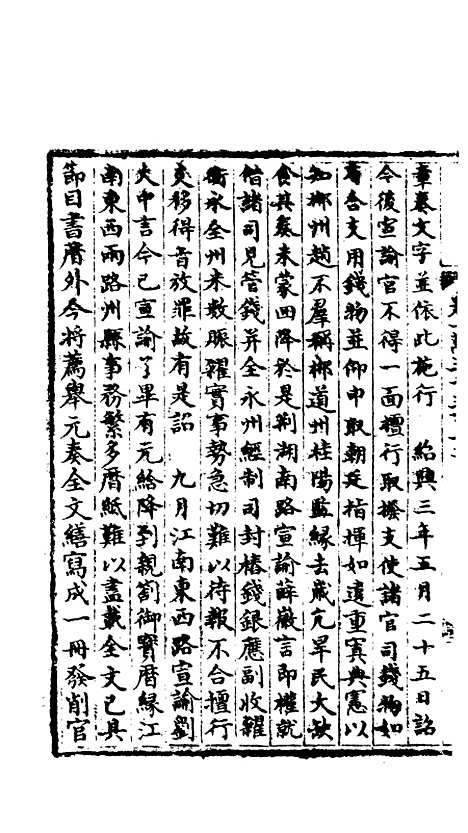 章奏文字並依此施行　紹興三年五月二十五日詔
今後宣諭官不得一面擅行取撥支使諸官司錢物如
有合支用錢物並仰申取朝廷指揮如違重寘典憲以
知郴州趙不羣稱郴道州桂陽監緣去歲亢旱民大缺
食具奏未蒙回降於是荆湖南路宣諭薛徽言即權就
借諸司見管錢并全永州經制司封樁錢銀應副收糴
衡永全州米數賑糶實事勢急切難以待報不合擅行
支移得旨放罪故有是詔　九月江南東西路宣諭劉
大中言今已宣諭了畢有元給降到親劄御寳曆緣江
南東西兩路州縣事務繁多曆紙難以盡載全文已具
節目書曆外今將薦舉元奏全文繕寫成一冊發削官